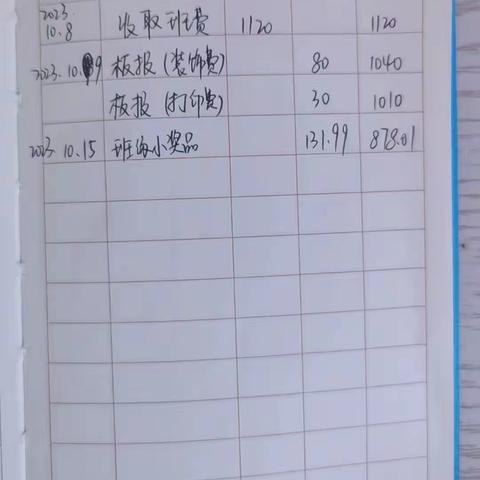 2023.
10.8 收取班费 1120 1120
2023.10.9 板报(装饰费) 80 1040
板报(打印费) 30 1010
2023.10.15 班级小奖品 131.99 878.01